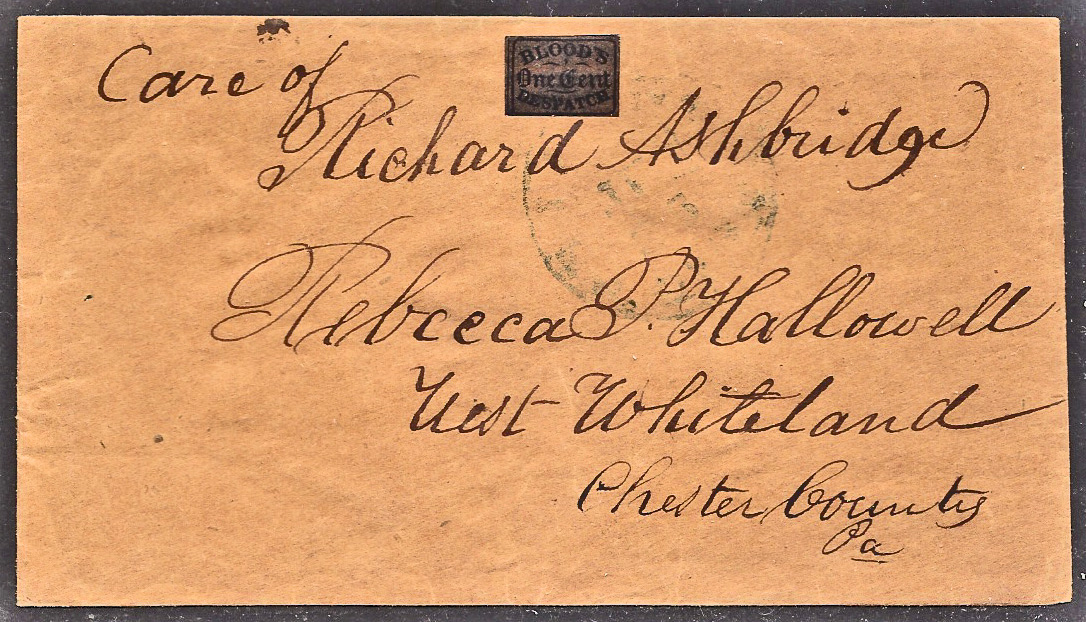 BLOOD'S
One Cent
DESPATCH
Care of
Richard Ashbridge
Rebecca P. Hallowell
West Whiteland
Chester County
Pa